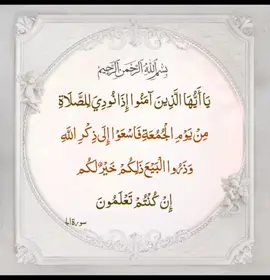 بِسْمِ اللَّهِ الرَّحْمَنِ الرَّحِيمِ
يَا أَيُّهَا الَّذِينَ آمَنُوا إِذَا نُودِيَ لِلصَّلَاةِ
مِنْ يَوْمِ الْجُمُعَةِ فَاسْعَوْا إِلَى ذِكْرِ اللَّهِ
وَذَرُوا الْبَيْعَ ذَلِكُمْ خَيْرٌ لَكُمْ
إِنْ كُنْتُمْ تَعْلَمُونَ
سورة